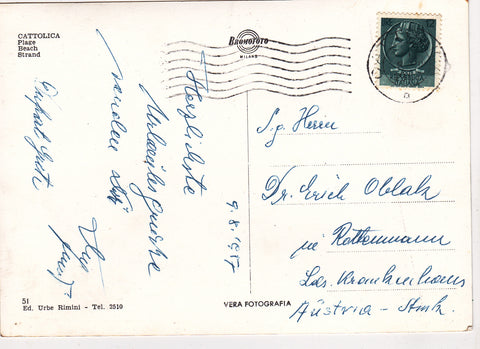 CATTOLICA
Plage
Beach
Strand
BROMOFOTO
MILANO
Herzlichste
Urlaubsgrüsse
senden
9. 8. 1957
S. g. Herrn
Dr. Erich Oblak
in Rottenmann
Lds. Krankenhaus
Austria - Stmk.
51
Ed. Urbe Rimini - Tel. 2510
VERA FOTOGRAFIA